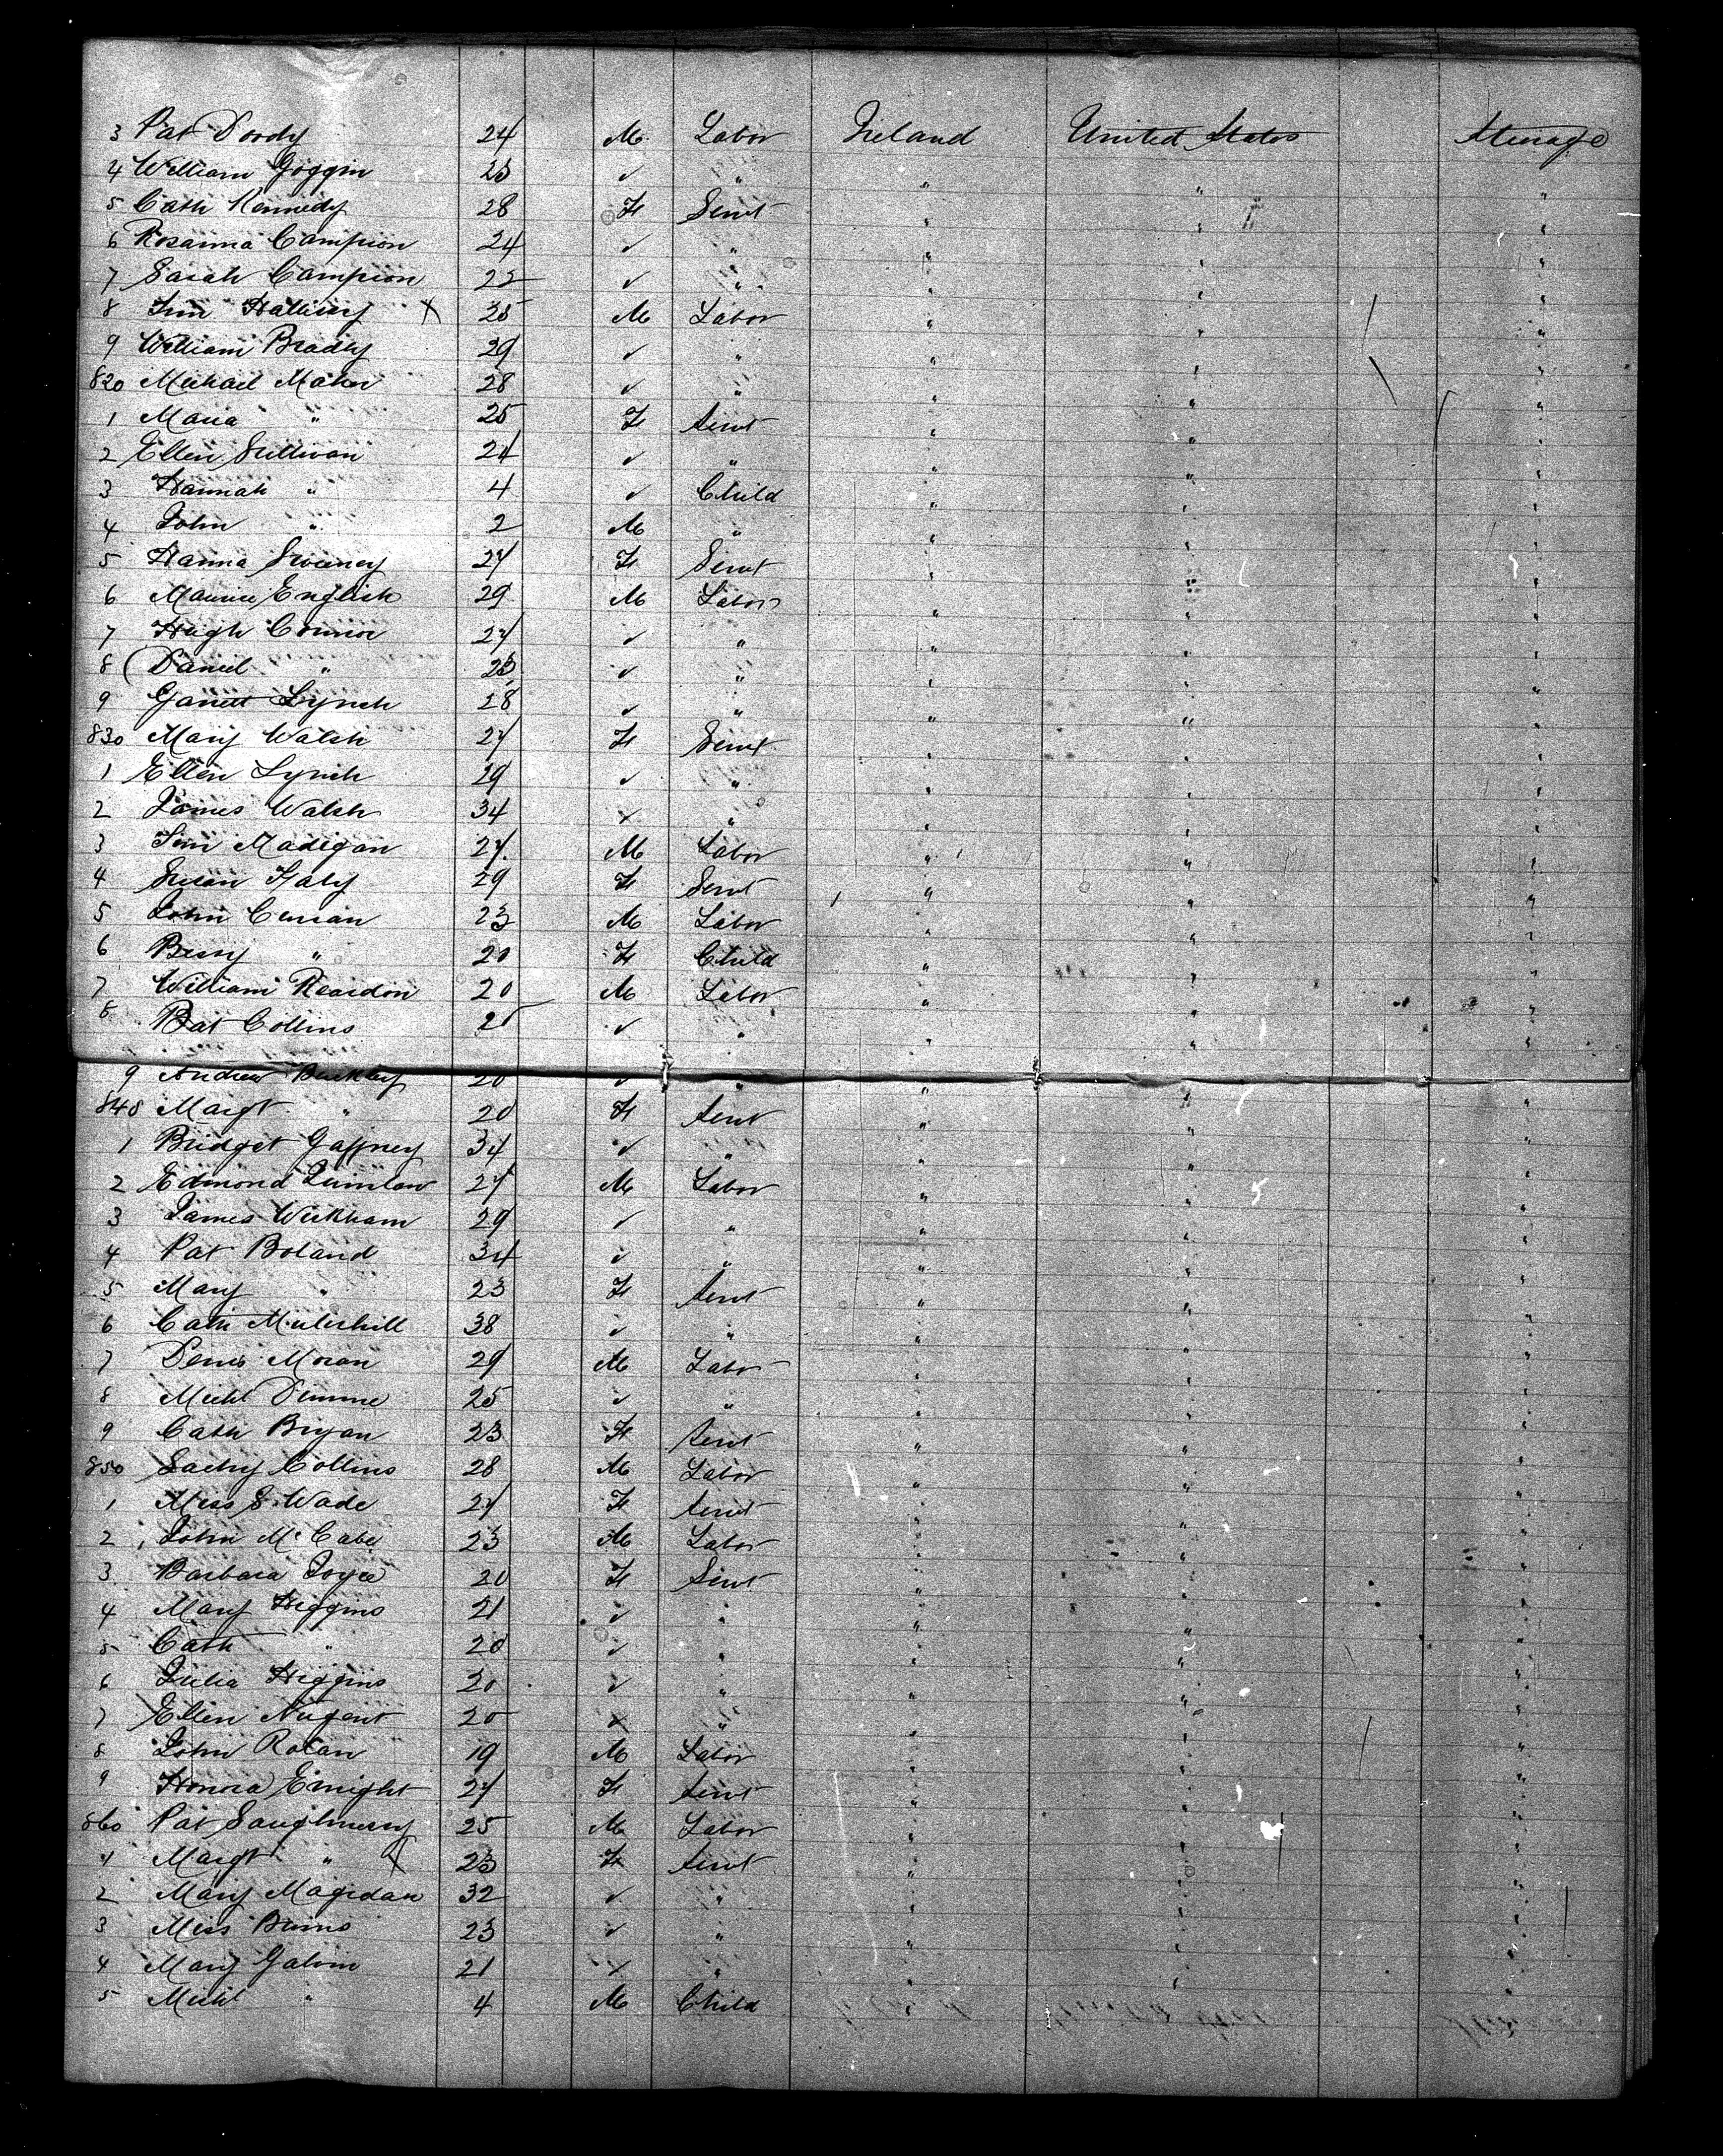 3 Pat Doody 24 M Labor Ireland United States Steerage
4 William Goggin 23 ✓ " " " "
5 Cath Kennedy 28 F Servt " " "
6 Rosanna Campion 24 ✓ " " " "
7 Sarah Campion 22 ✓ " " " "
8 Tim x 25 M Labor " " "
9 William Bradly 29 ✓ " " " "
820 Michael Maher 28 ✓ " " " "
1 Maria " 25 F Servt " " "
2 Ellen Sullivan 24 ✓ " " " "
3 Hannah " 4 ✓ Child " " "
4 John " 2 M " " " "
5 Hanna Sweeney 27 F Servt " " "
6 Maurice English 29 M Labor " " "
7 Hugh Connor 27 ✓ " " " "
8 Daniel " 23 ✓ " " " "
9 Garrett Lynch 28 ✓ " " " "
830 Mary Walsh 27 F Servt " " "
1 Ellen Lynch 29 ✓ " " " "
2 James Walsh 34 x " " " "
3 Tim Madigan 27 M Labor " " "
4 Susan Haly 29 F Servt " " "
5 John Curran 23 M Labor " " "
6 Bessy " 20 F Child " " "
7 William Reardon 20 M Labor " " "
8 Bat Collins 25 ✓ " " " "
9 Andrew Buckley 20 ✓ " " " "
840 Margt " 20 F Servt " " "
1 Bridget Gaffney 34 ✓ " " " "
2 Edmond Quinlan 27 M Labor " " "
3 James Wickham 29 ✓ " " " "
4 Pat Boland 34 ✓ " " " "
5 Mary " 23 F Servt " " "
6 Cath Mulchill 38 ✓ " " " "
7 Denis Moran 29 M Labor " " "
8 Michl 25 ✓ " " " "
9 Cath Bryan 23 F Servt " " "
850 Collins 28 M Labor " " "
1 Miss S Wade 27 F Servt " " "
2 John McCabe 23 M Labor " " "
3 Barbara Joyce 20 F Servt " " "
4 Mary Higgins 21 ✓ " " " "
5 Cath " 20 ✓ " " " "
6 Julia Higgins 20 ✓ " " " "
7 Ellen Nugent 20 x " " " "
8 John Rolan 19 M Labor " " "
9 Honora Enright 27 F Servt " " "
860 Pat Saughnersy 25 M Labor " " "
1 Margt " x 23 F Servt " " "
2 Mary Magidan 32 ✓ " " " "
3 Miss Burns 23 ✓ " " " "
4 Mary Galvin 21 x " " " "
5 Michl " 4 M Child " " "